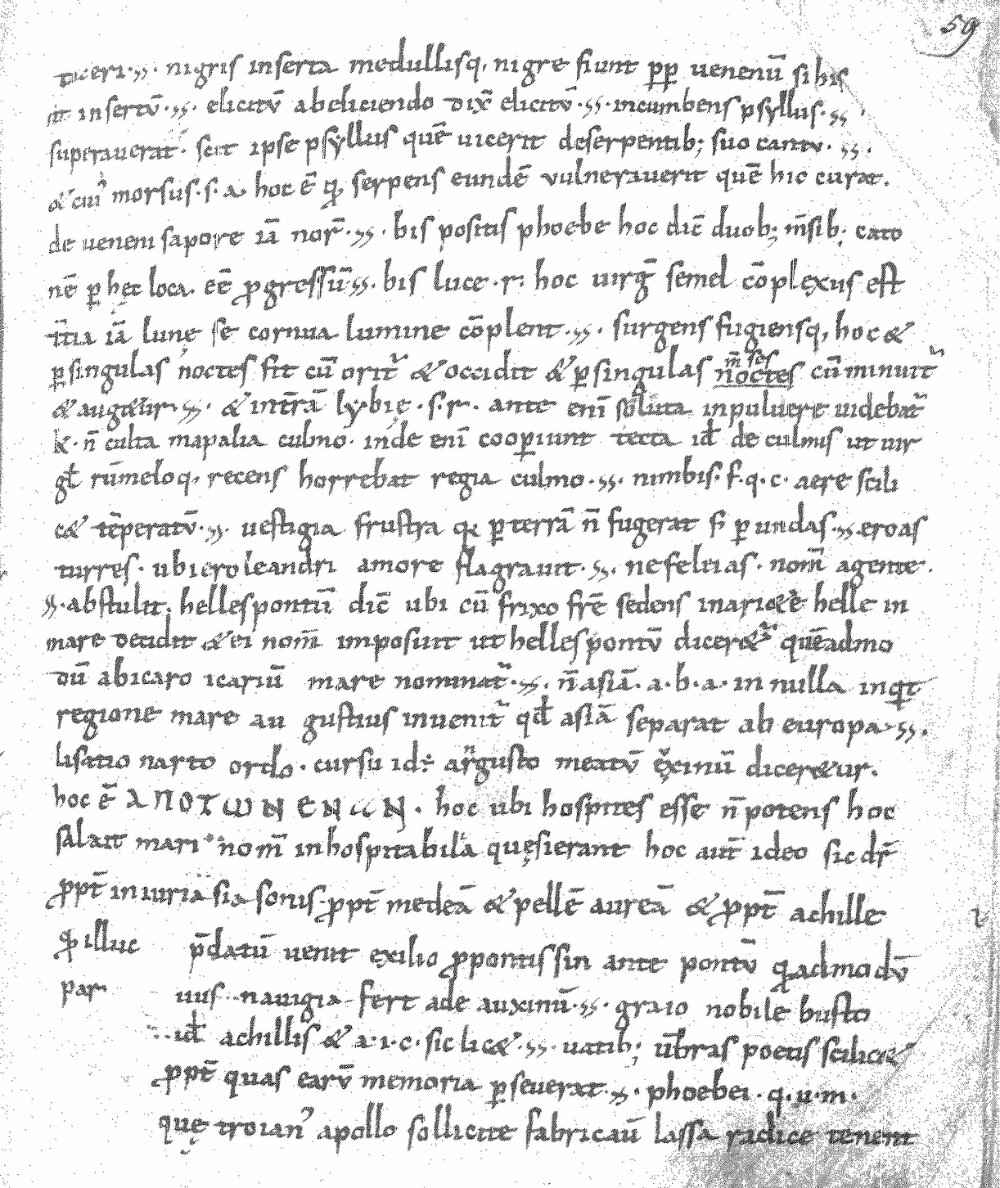 59
nigris inserta medullisq; nigre fiunt ꝓp uenenū si his
insertū ·;;· elicitū ab eliciendo dix̄ elicitū ·;;· incumbens psyllus ·;;·
superauerat · ipse psyllus quē uicerit deserpentib; suo cantu ·;;·
& cui' morsus · s · a · hoc ē qđ serpens eundē vulnerauerit quē hic curat ·
de ueneni sapore iā nor̄ ·;;· bis positis phoebe hoc dic̄ duob; m̄sib; cato
nē ꝑ hęc loca · eē ꝓgressū ·;;· bis luce · r · hoc uirḡ semel cōplexus est
iā lunę se cornua lumine cōplent ·;;· surgens fugiensq; hoc &
ꝑ singulas noctes fit cū orit̄ & occidit & ꝑ singulas noctes m̄ses cū minuit̄
& aug&ur ·;;· & int̄rā lybię · s · r · ante enī soluta inpuluere uidebat̄
k · n̄ culta mapalia culmo · inde enī cooꝑiunt tecta id̄ de culmis ut uir
gł rūmeloq; recens horrebat regia culmo ·;;· nimbis · f · q · c · aere scili
c& tēperatū ·;;· uestigia frustra q ꝑ terrā n̄ fugerat s; ꝑ undas ·;;· eroas
turres · ubi ero leandri amore flagrauit ·;;· nefeleias · nom̄ agente ·
;;· abstulit; hellespontū dic̄ ubi cū frixo fr̄e sedens inari&e helle in
mare decidit & ei nom̄ imposuit ut hellespontū dicer&̄ quēadmo
dū abicaro icariū mare nominat̄ ·;;· n̄ asiā · a · b · a · in nulla inqͥt
regione mare an gustius inuenit̄ qd̄ asiā separat ab europa ·;;·
lisatio narto ordo · cursu id÷ argusto meatū ęxinū dicer&ur ·
hoc ē ΑΠΟΤωΝ · hoc ubi hospites esse n̄ potens hoc
salait mari nom̄ inhospitabila quęsierant hoc aut̄ ideo sic dr̄
ꝓpt̄ iniuria sia sonis · ꝓpt̄ medeā & pellē aureā & ꝓpt̄ achille
qđ illuc p̄datū uenit exilio ꝓpontis sin ante pontū qđadmodū
par uus · nauigia fert ade auxinū ·;;· graio nobile busto
id̄ achillis & a · i · c · sic lic& ·;;· uatib; ūbras poetis scilic&
ꝓpt̄ quas earū memoria ꝑseuerat ·;;· phoebei · q · u · m ·
quę troian' apollo sollicite fabricaū lassa radice tenent